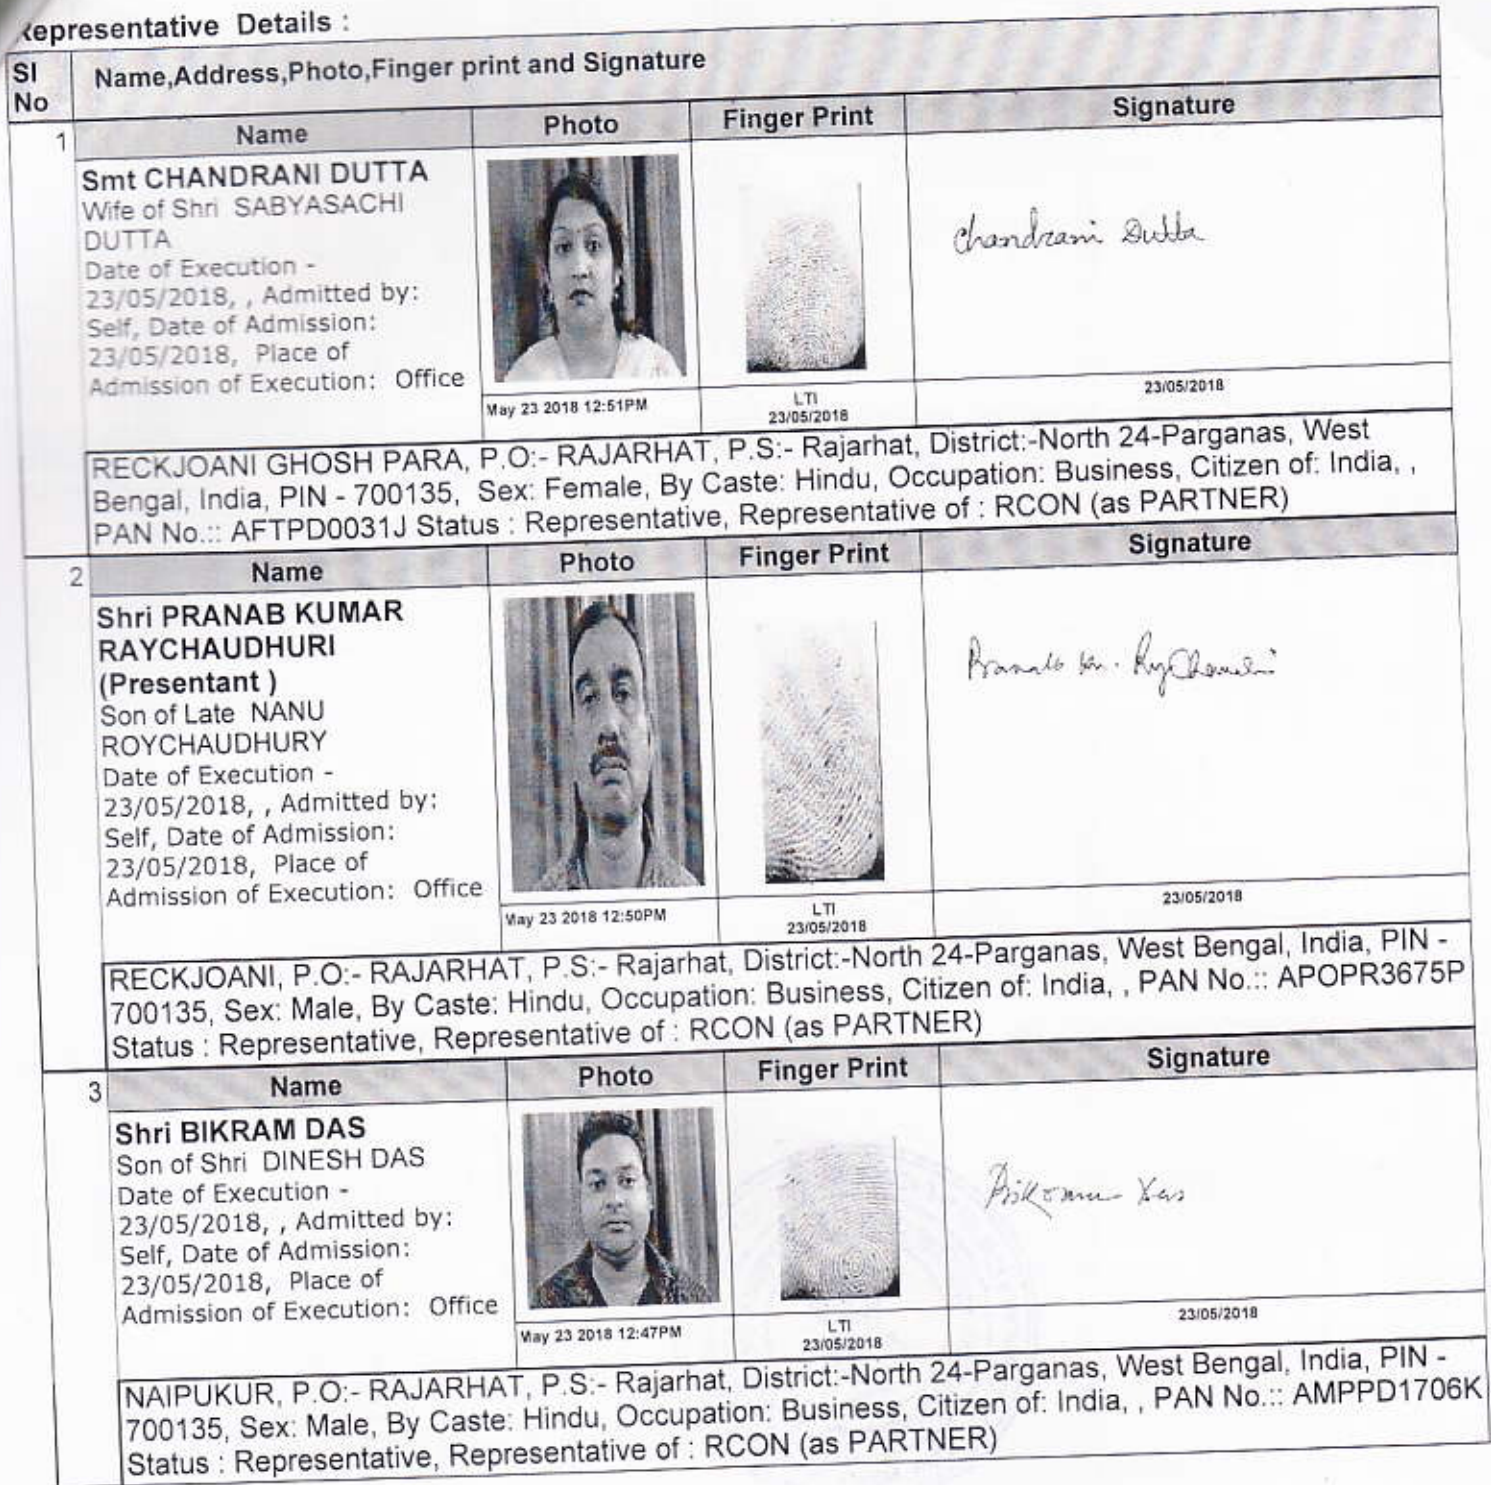 epresentative Details :
Sl No
Name,Address,Photo,Finger print and Signature
1
Name
Photo
Finger Print
Signature
Smt CHANDRANI DUTTA
Wife of Shri SABYASACHI
DUTTA
Date of Execution -
23/05/2018, , Admitted by:
Self, Date of Admission:
23/05/2018, Place of
Admission of Execution: Office
Chandrani Dutta
May 23 2018 12:51PM
LTI
23/05/2018
23/05/2018
RECKJOANI GHOSH PARA, P.O:- RAJARHAT, P.S:- Rajarhat, District:-North 24-Parganas, West
Bengal, India, PIN - 700135, Sex: Female, By Caste: Hindu, Occupation: Business, Citizen of: India, ,
PAN No.:: AFTPD0031J Status : Representative, Representative of : RCON (as PARTNER)
2
Name
Photo
Finger Print
Signature
Shri PRANAB KUMAR
RAYCHAUDHURI
(Presentant )
Son of Late NANU
ROYCHAUDHURY
Date of Execution -
23/05/2018, , Admitted by:
Self, Date of Admission:
23/05/2018, Place of
Admission of Execution: Office
May 23 2018 12:50PM
LTI
23/05/2018
23/05/2018
RECKJOANI, P.O:- RAJARHAT, P.S:- Rajarhat, District:-North 24-Parganas, West Bengal, India, PIN -
700135, Sex: Male, By Caste: Hindu, Occupation: Business, Citizen of: India, , PAN No.:: APOPR3675P
Status : Representative, Representative of : RCON (as PARTNER)
3
Name
Photo
Finger Print
Signature
Shri BIKRAM DAS
Son of Shri DINESH DAS
Date of Execution -
23/05/2018, , Admitted by:
Self, Date of Admission:
23/05/2018, Place of
Admission of Execution: Office
May 23 2018 12:47PM
LTI
23/05/2018
23/05/2018
NAIPUKUR, P.O:- RAJARHAT, P.S:- Rajarhat, District:-North 24-Parganas, West Bengal, India, PIN -
700135, Sex: Male, By Caste: Hindu, Occupation: Business, Citizen of: India, , PAN No.:: AMPPD1706K
Status : Representative, Representative of : RCON (as PARTNER)